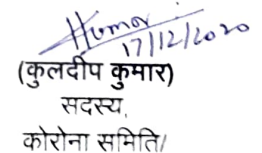 Kumar
17/12/2020
(कुलदीप कुमार)
सदस्य,
कोरोना समिति।